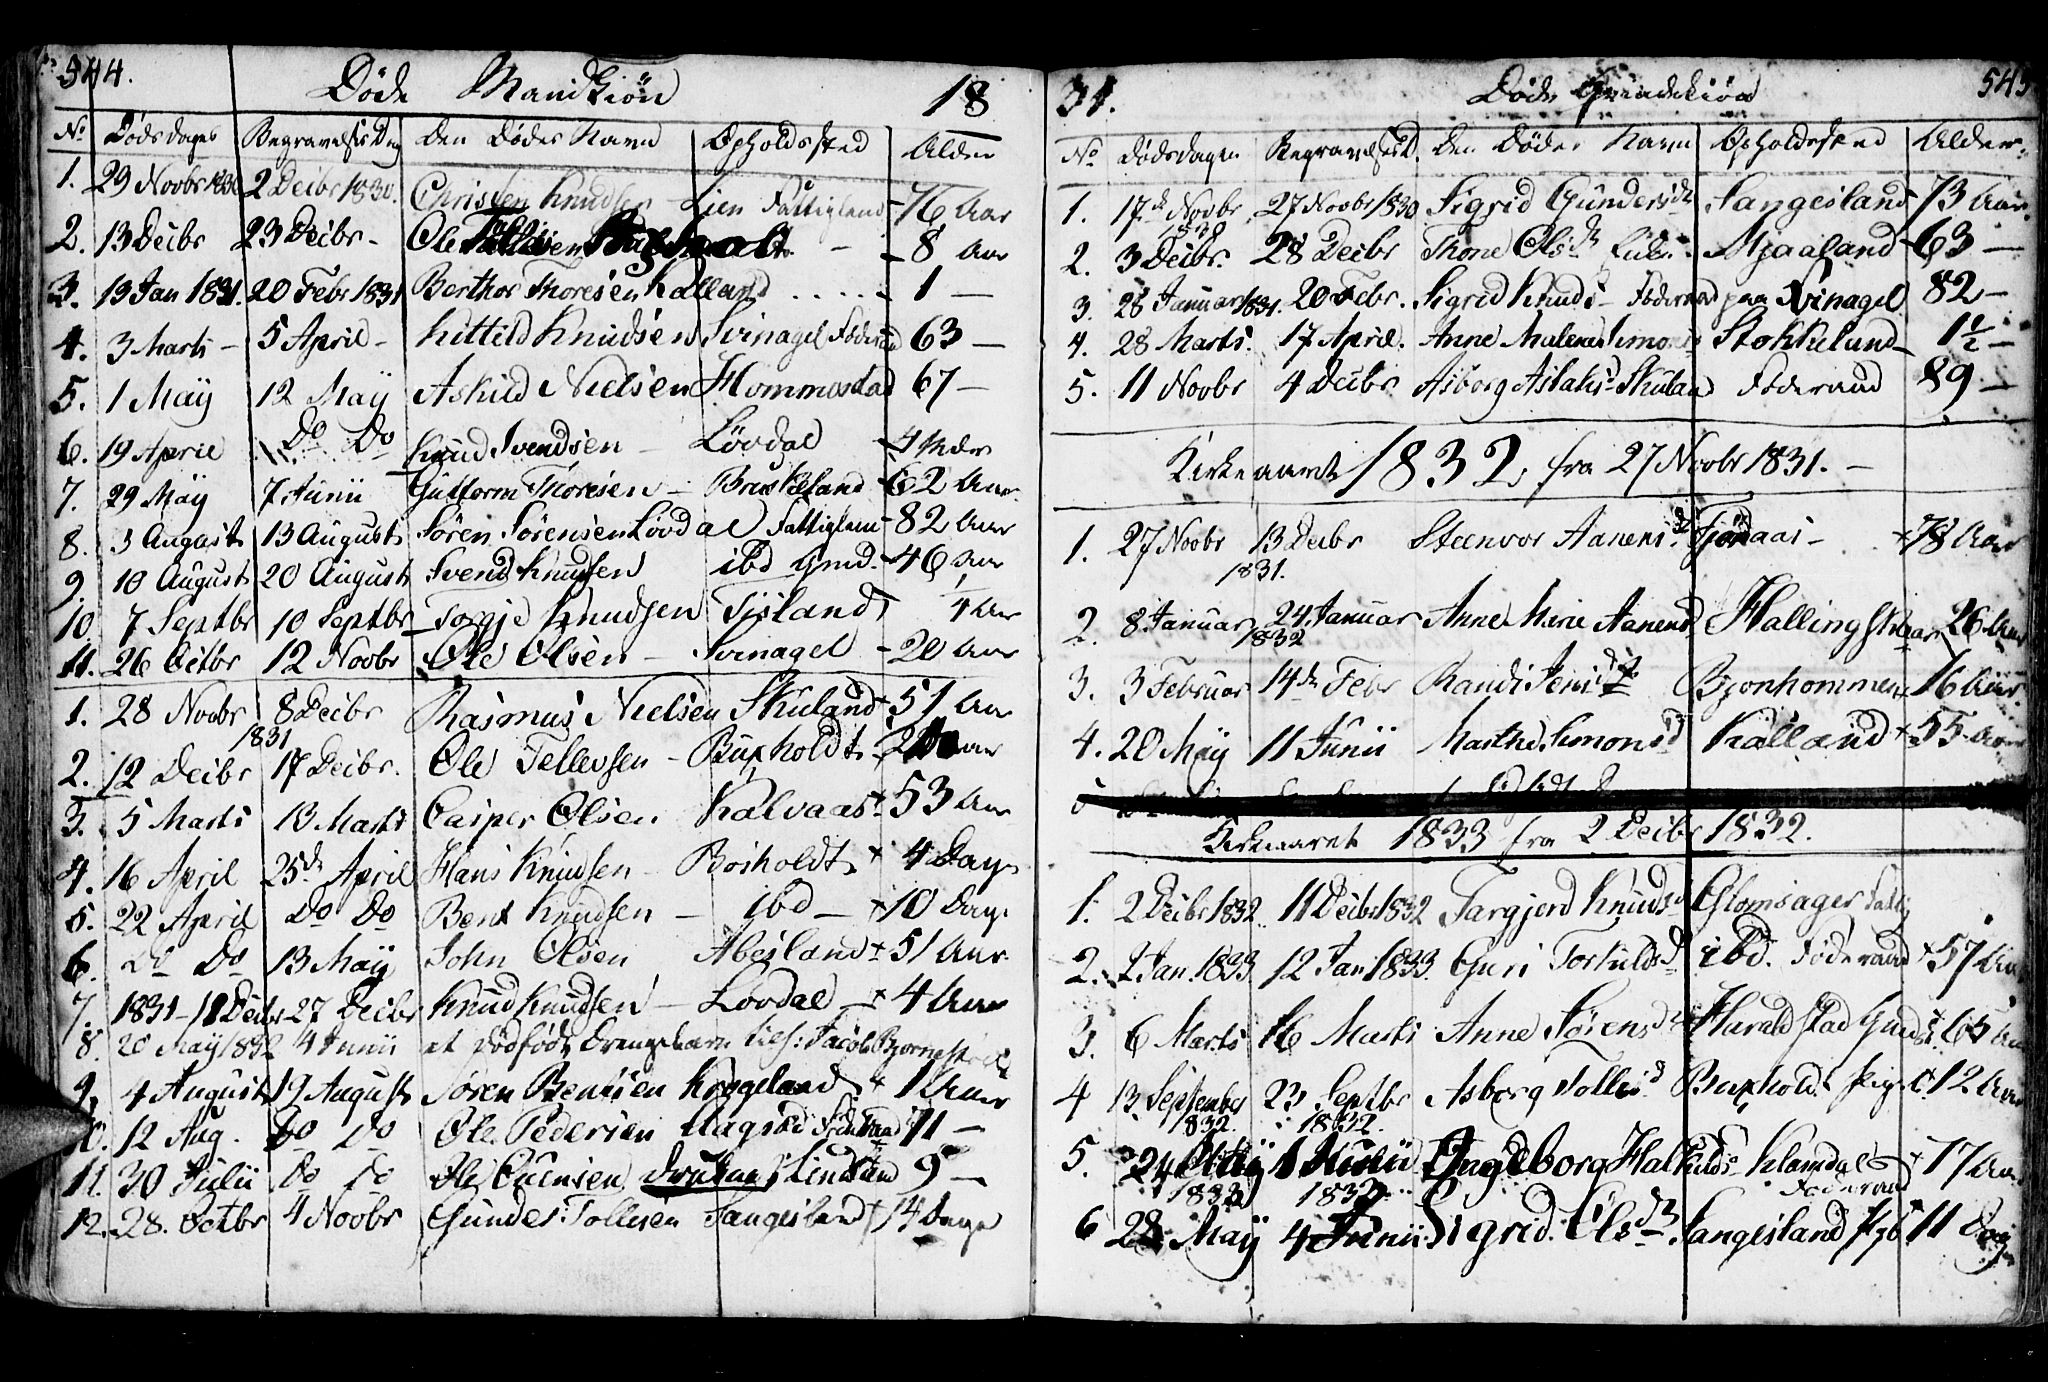 544.
Døde Mandkiön 18
No Dødsdagen Begravelses Dag Den Dødes Navn Opholdssted Alder
1. 29 Novbr 1830 2 Decbr 1830. Christen Knudsen - Lien Fattiglem - 76 Aar
2. 13 Decbr 23 Decbr - Ole - 8 Aar
3. 19 Jan 1831. 20 Febr 1831 Berthor Thoresen Kalland - 1 -
4. 3 Marts - 5 April - Kittild Knudsen Svinagel Föderaad 63 -
5. 1 May 12 May Askild Nielsen Hommestad 67 -
6. 19 April Do Do Knud Svendsen - Lövdal - 4
7. 29 May 7. Junii Guttorm Thoresen - Bruskeland - 62 Aar
8. 3 August 13 August Sören Sörensen Lovdal Fattiglem - 82 Aar
9. 10 August 20 August Svend Knudsen ibd Gmd. - 46 Aar
10. 7 Septbr 10 Septbr Torgje Knudsen Tisland 4 Aar
11. 26 Octbr 12 Novbr Ole Olsen - Svinagel - 20 Aar
1. 28 Novbr 8 Decbr Rasmus Nielsen Skuland + 51 Aar
1831
2. 12 Decbr 17 Decbr. Ole Tellevsen - Buxholdt Aar
3. 5 Marts 13 Marts Casper Olsen Kalvaas + 53 Aar
4. 16 April 25de April Hans Knudsen - Bosholdt + 4 Dage
5. 22 April Do Do Bent Knudsen - ibd - + 10 Dage
6. Do Do 13 May John Olsen Abesland + 51 Aar
7. 1831 - 11 Decbr 27 Decbr Knud Knudsen - Lovdal - + 4 Aar
8. 20 May 1832 4 Junii et dödfödt Drengebarn Jacob
9. 4 August 19 August Søren Bentsen Krogeland + 1 Aar
10. 12 Aug. Do Do Ole Pedersen Aagsted 71 -
11. 30 Julii Do Do Ole Evensen Lindland 9 -
12. 28. Octbr 4 Novbr Gunder Tollesen Sangesland + 14 Dage
31. Døde Qvindekiön 545
No Dødsdagen Begravelsesd. Den Dødes Navn Opholdssted Alder.
1. 17de Novbr 27 Novbr 1830 Sigrid Gundersdr Sangesland 73 Aar.
1830
2. 3 Decbr. 28 Decbr Thone Olsdr Mjaaland - 63 -
3. 28 Januar 1831. 20 Febr. Sigrid Knuds - Föderaad paa Svinagel 82 -
4. 28 Marts. 17 April. Anne Malene Simons Stokkeland - 1½ -
5. 11 Novbr 4 Decbr Asborg Aslaksd. Skulan Föderaad 89 -
Kirkeaaret 1832, fra 27 Novbr 1831. -
1. 27 Novbr 13 Decbr Steenvor Aanensd. Fjøraas - + 78 Aar
1831.
2. 8. Januar 24. Januar Anne Marie Aanensd Hallingskaar 26 Aar
1832
3. 3 Februar 14de Febr Randi Jensd Bjonhommen 16 Aar
4. 20 May 11 Junii Marthe Simonsd Kalland + 55 Aar
5
Kirkeaaret 1833 fra 2 Decbr 1832.
1. 2 Decbr 1832. 11 Decbr 1832 Targjerd Knudsd Glomsager
2. 2 Jan. 1833. 12 Jan 1833. Guri Torkildsd ibd. Föderaad + 57 Aar
3. 6 Marts 16 Marts Anne Sørensd Haraldstad 65 Aar
4 13 September 23 Septbr Asborg Tollisd Buxholdt Pige + 12 Aar
1832. 1832.
5. 24 May 1 Junii Ingeborg Halkildsd Klomdal + 77 Aar
1832 1832 Föderaad
6 28 May 4 Junii Sigrid Olsdr Sangesland 11 Dage